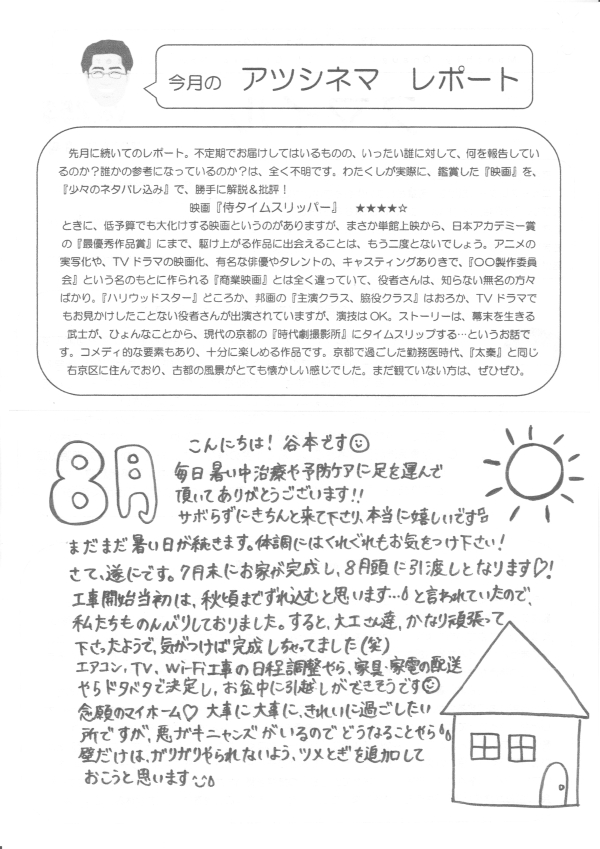 今月の アツシネマ レポート
先月に続いてのレポート。不定期でお届けしてはいるものの、いったい誰に対して、何を報告してい
るのか?誰かの参考になっているのか?は、全く不明です。わたくしが実際に、鑑賞した『映画』を、
『少々のネタバレ込み』で、勝手に解説&批評!
映画『侍タイムスリッパー』 ★★★★☆
ときに、低予算でも大化けする映画というのがありますが、まさか単館上映から、日本アカデミー賞
の『最優秀作品賞』にまで、駆け上がる作品に出会えることは、もう二度とないでしょう。アニメの
実写化や、TVドラマの映画化、有名な俳優やタレントの、キャスティングありきで、『〇〇製作委員
会』という名のもとに作られる『商業映画』とは全く違っていて、役者さんは、知らない無名の方々
ばかり。『ハリウッドスター』どころか、邦画の『主演クラス、脇役クラス』はおろか、TVドラマで
もお見かけしたことない役者さんが出演されていますが、演技はOK。ストーリーは、幕末を生きる
武士が、ひょんなことから、現代の京都の『時代劇撮影所』にタイムスリップする…というお話で
す。コメディ的な要素もあり、十分に楽しめる作品です。京都で過ごした勤務医時代、『太秦』と同じ
右京区に住んでおり、古都の風景がとても懐かしい感じでした。まだ観ていない方は、ぜひぜひ。
8月
こんにちは! 谷本です☺
毎日暑い中治療や予防ケアに足を運んで
頂いてありがとうございます!!
サボらずにきちんと来て下さり、本当に嬉しいです
まだまだ暑い日が続きます。体調にはくれぐれもお気をつけ下さい!
さて、遂にです。7月末にお家が完成し、8月頭に引渡しとなります♡!
工事開始当初は、秋頃までずれ込むと思います…と言われていたので、
私たちものんびりしておりました。すると、大工さん達、かなり頑張って
下さったようで、気がつけば完成しちゃってました(笑)
エアコン、TV、Wi-Fi工事の日程調整やら、家具・家電の配送
やらドタバタで決定し、お盆中に引越しができそうです☺
念願のマイホーム♡ 大事に大事に、きれいに過ごしたい
所ですが、悪ガキニャンズがいるのでどうなることやら
壁だけは、ガリガリやられないよう、ツメとぎを追加して
おこうと思います